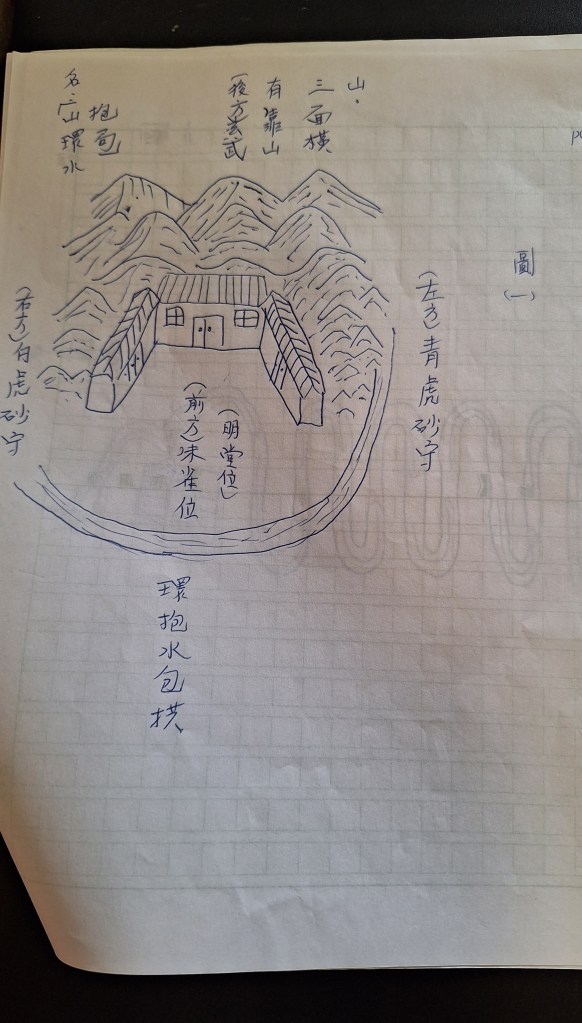 圖(一)
山.
三面橫
有靠山
(後方玄武
抱
山環水
(左方)青虎砂守
(明堂位)
(前方)味雀位
(右方)白虎砂守
環抱水包拱